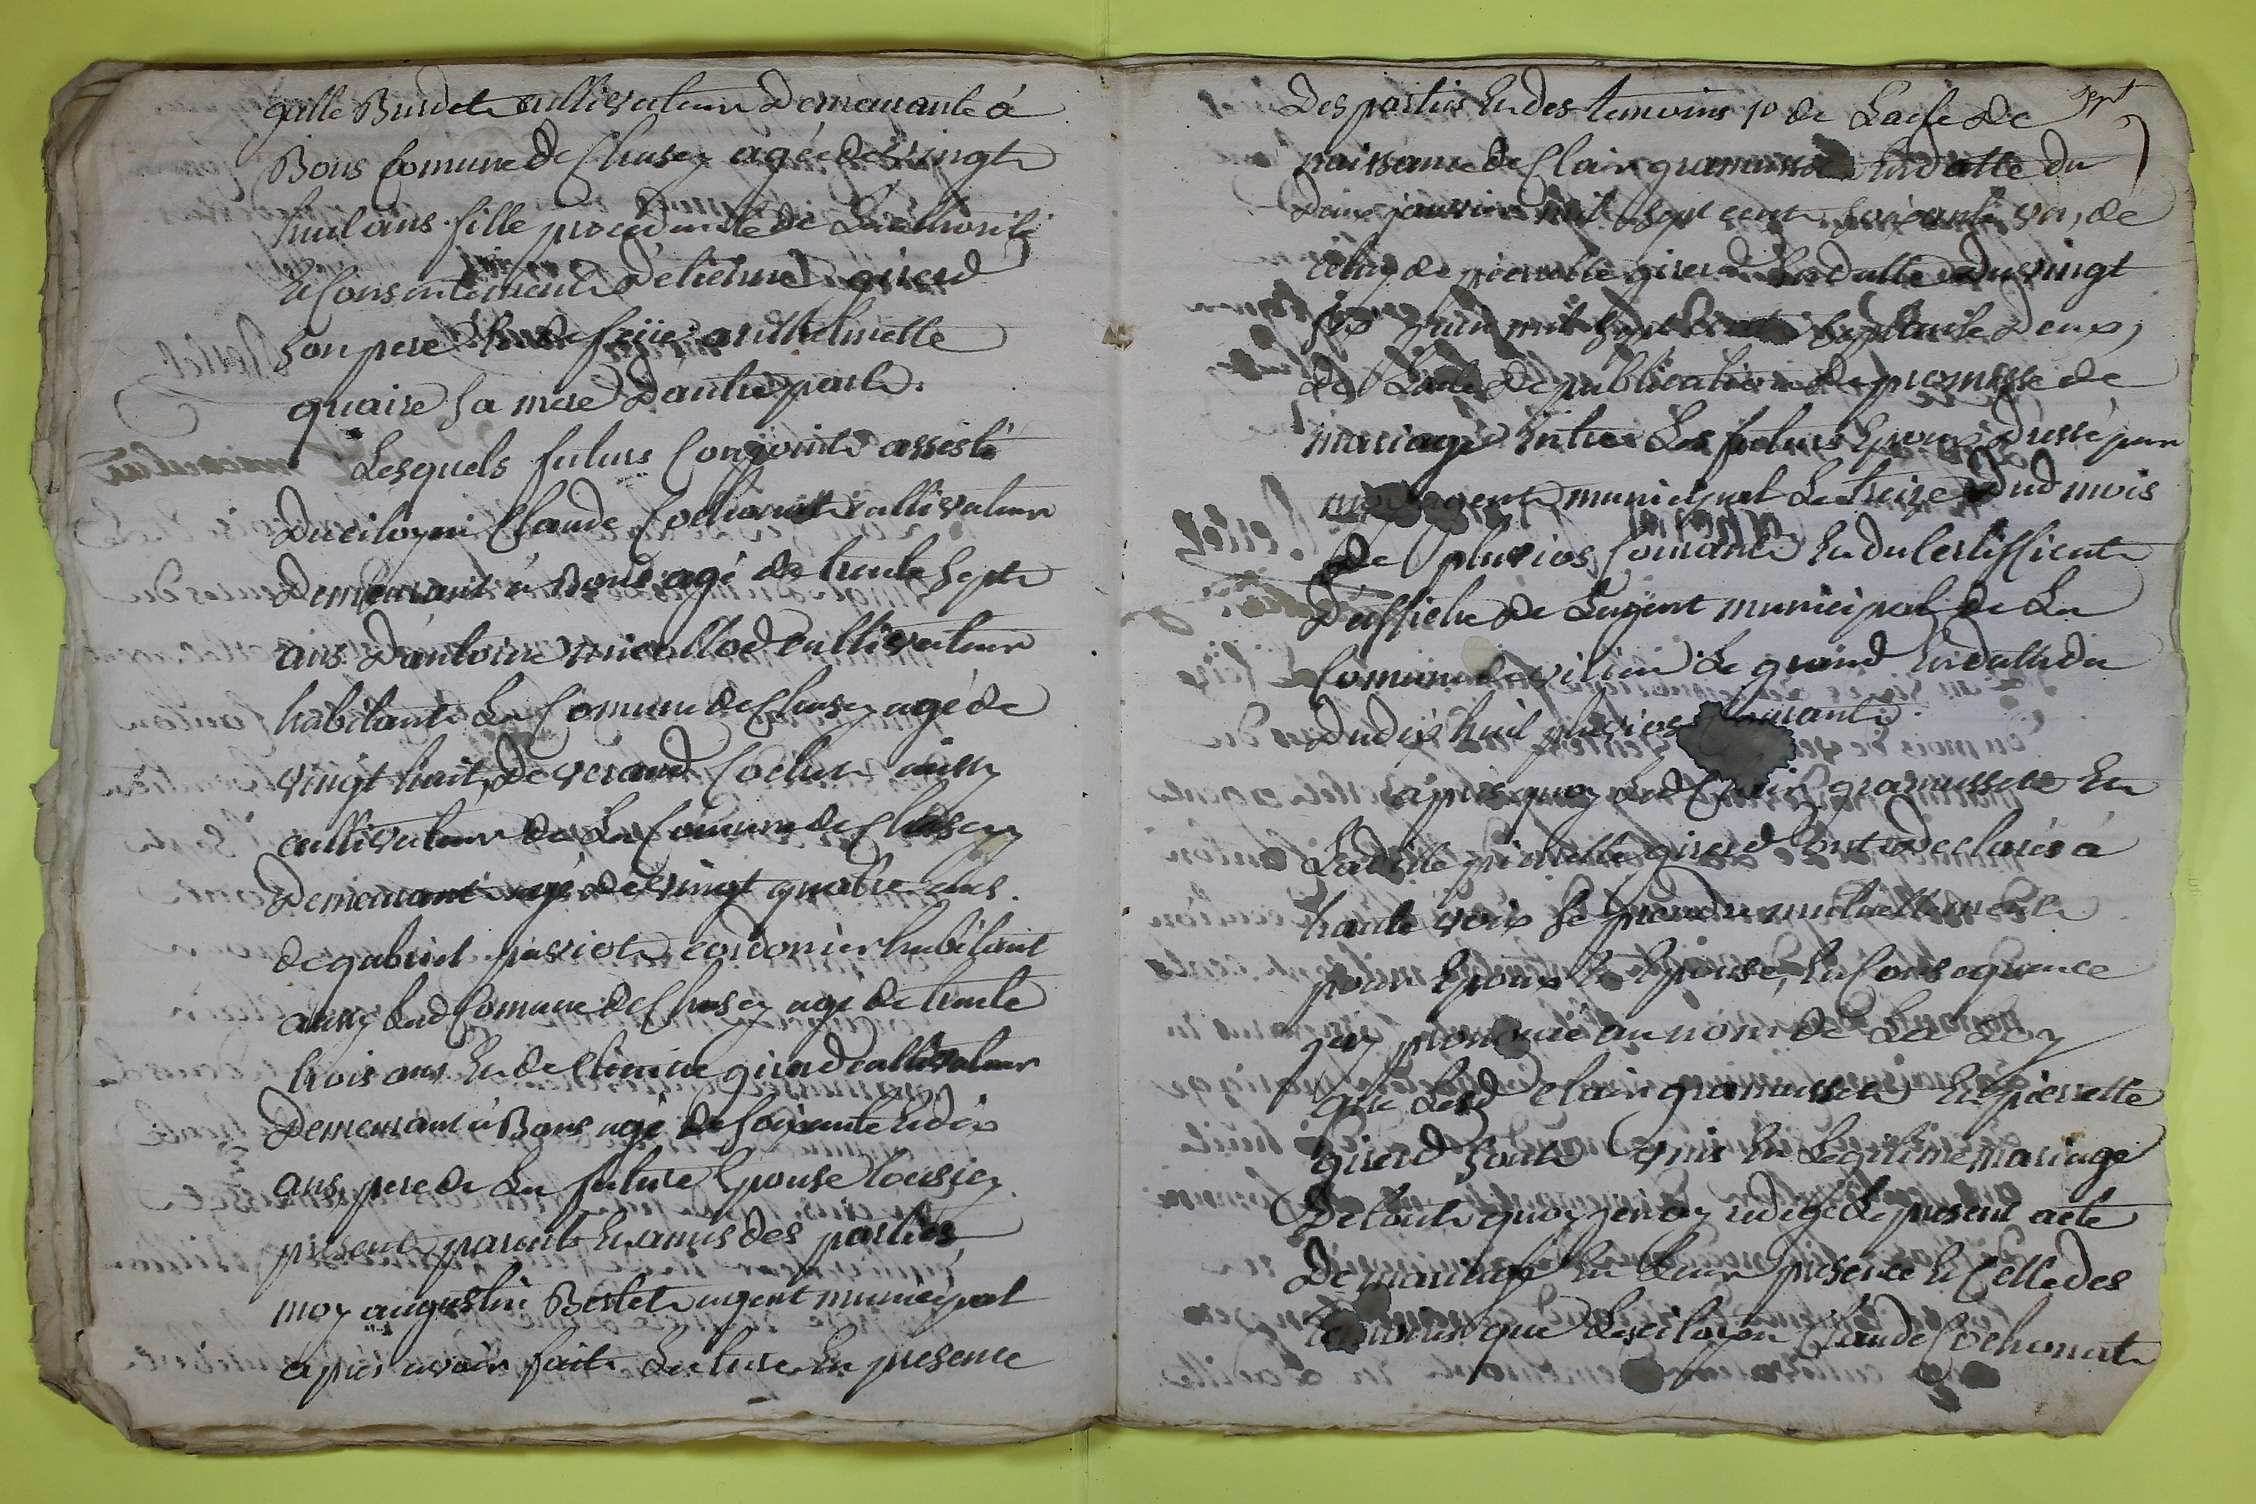 gille Burdet cultivateur Demeurante à
Bons Comune De Chasey agée De vingt
huit ans fille procédante de Lauthorité
Et Consentement D'étienne girerd
Son pere Et de feüe anthelmette
quaire Sa mere D'autre part.
Lesquels futurs Conjoints assisté
Du citoyen Claude Cochonat cultivateur
Demeurant à Bons agé de trente Sept
ans D'antoine micollod cultivateur
habitant La Comune De Chasey agé de
vingt huit, De verand Cochet aussy
cultivateur De La Comune de Chasey
Demeurant agé de vingt quatre ans
De gabriel paviot cordonier habitant
aussy Lad Comune De Chasey agé De trente
trois ans Et De Etienne girerd cultivateur
Demeurant à Bons agé De Soixante Et dix
ans, pere De La future Epouse tous icy
présent parents Et amis des parties,
moy augustin Bertet agent municipal
apres avoir fait Lecture En presence
Sept
7
Des parties Et des temoins 1º de Lacte De
naissance De Clair gramusset En datte du
Douze janvier mil Sept cent Soixante un, de
celuy de pierrette girerd En datte du vingt
Six juin mil Sept cent Soixante Deux,
De Lacte De publication De promesse de
mariage Entre Les futurs Epoux Dressé par
moy agent municipal Le treize Dud mois
de pluvios Courant Et du Certifficat
D'affiche de Lagent municipal de La
Comune de virieu Le grand En datte du
Dudix huit pluvios Courant.
après quoy Led Clair gramusset Et
Ladille pierrette girerd ont Declarés à
haute voix Se prendre mutuellement
pour Epoux Et Epouse, En Consequence
jay prononcé au nom de La Loy
que Lesd Clair gramusset Et pierrette
girerd Sont unis En Legitime mariage
De tout quoy jen ay redigé Le present acte
De mariage En Leur presence Et Celle des
temoins que Le citoyen Claude Cochonat